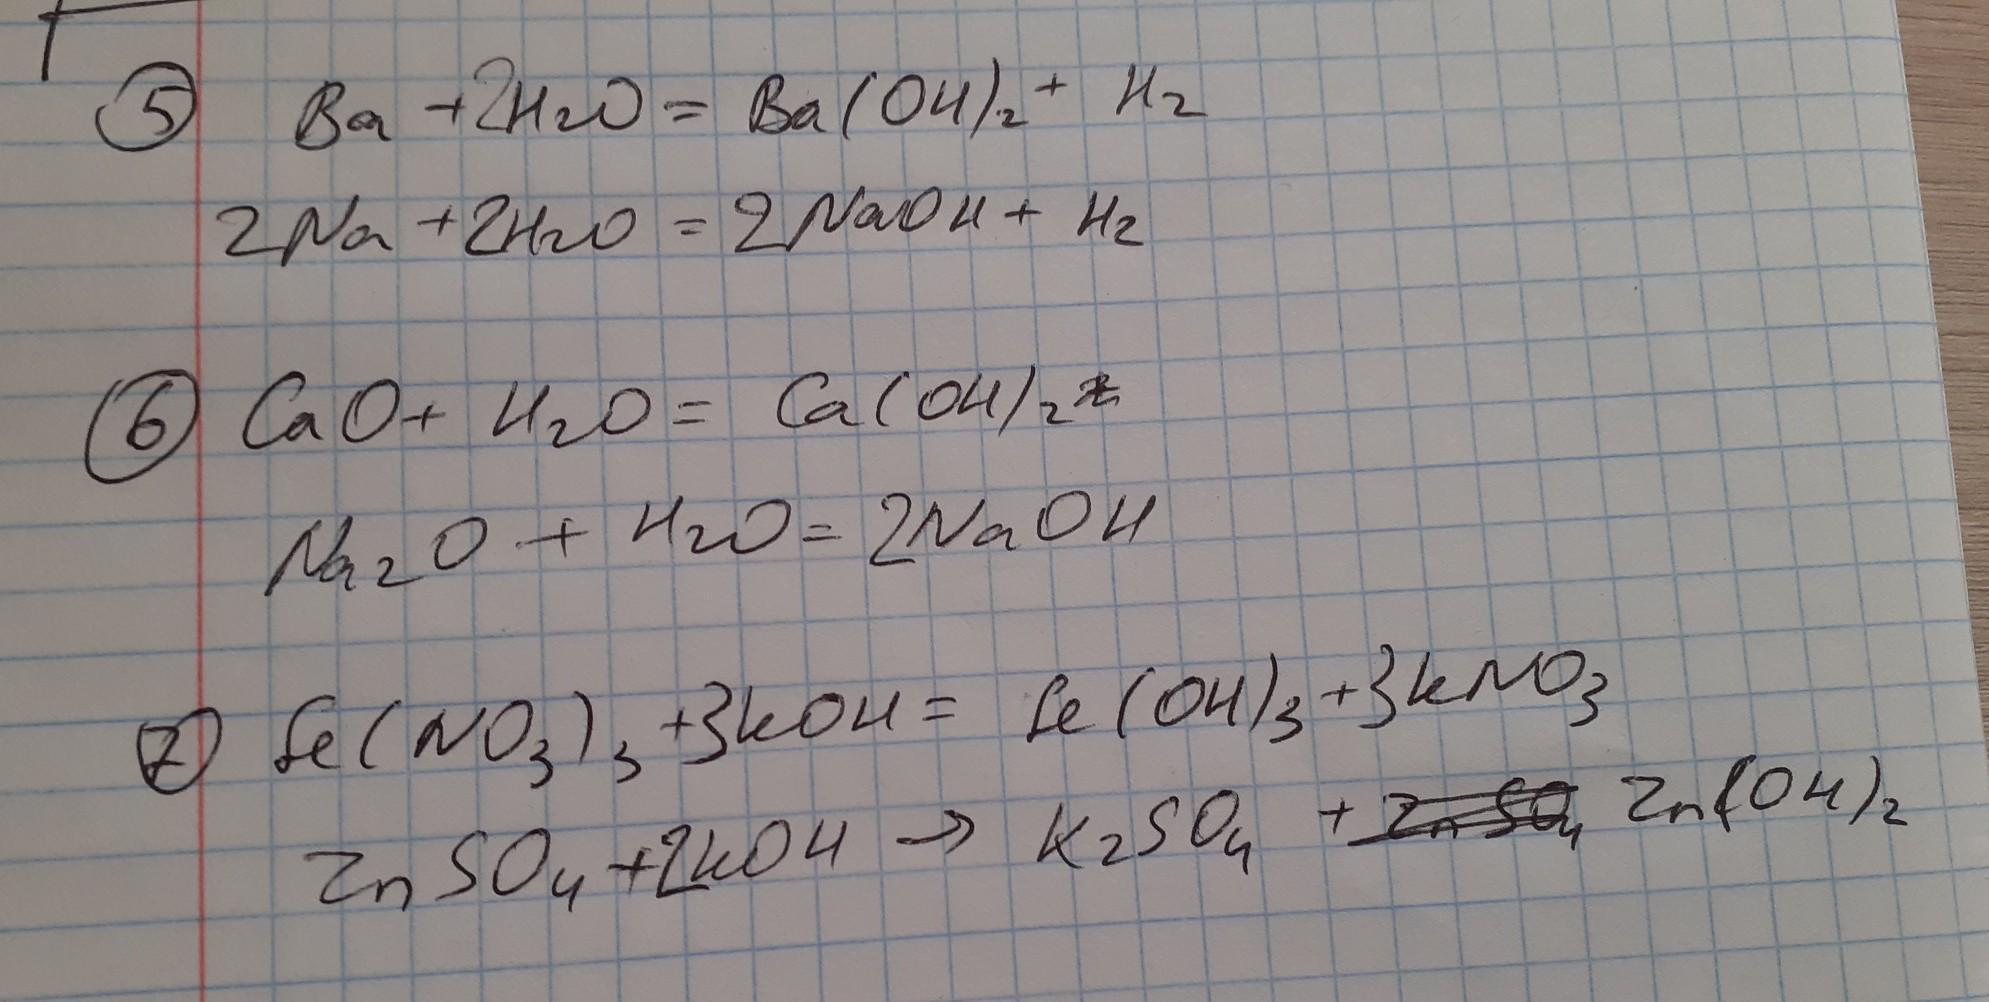 5 Ba + 2H2O = Ba(OH)2 + H2
2Na + 2H2O = 2NaOH + H2
6 CaO + H2O = Ca(OH)2
Na2O + H2O = 2NaOH
7 Fe(NO3)3 + 3KOH = Fe(OH)3 + 3KNO3
ZnSO4 + 2KOH → K2SO4 + ZnSO4 Zn(OH)2